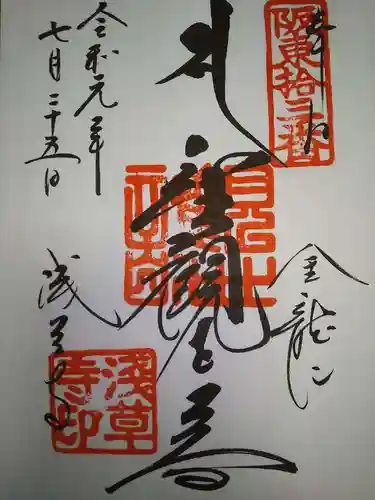 奉拝
阪東拾三番
金龍山
聖観世音
浅草寺
浅草寺印
令和元年
七月二十五日